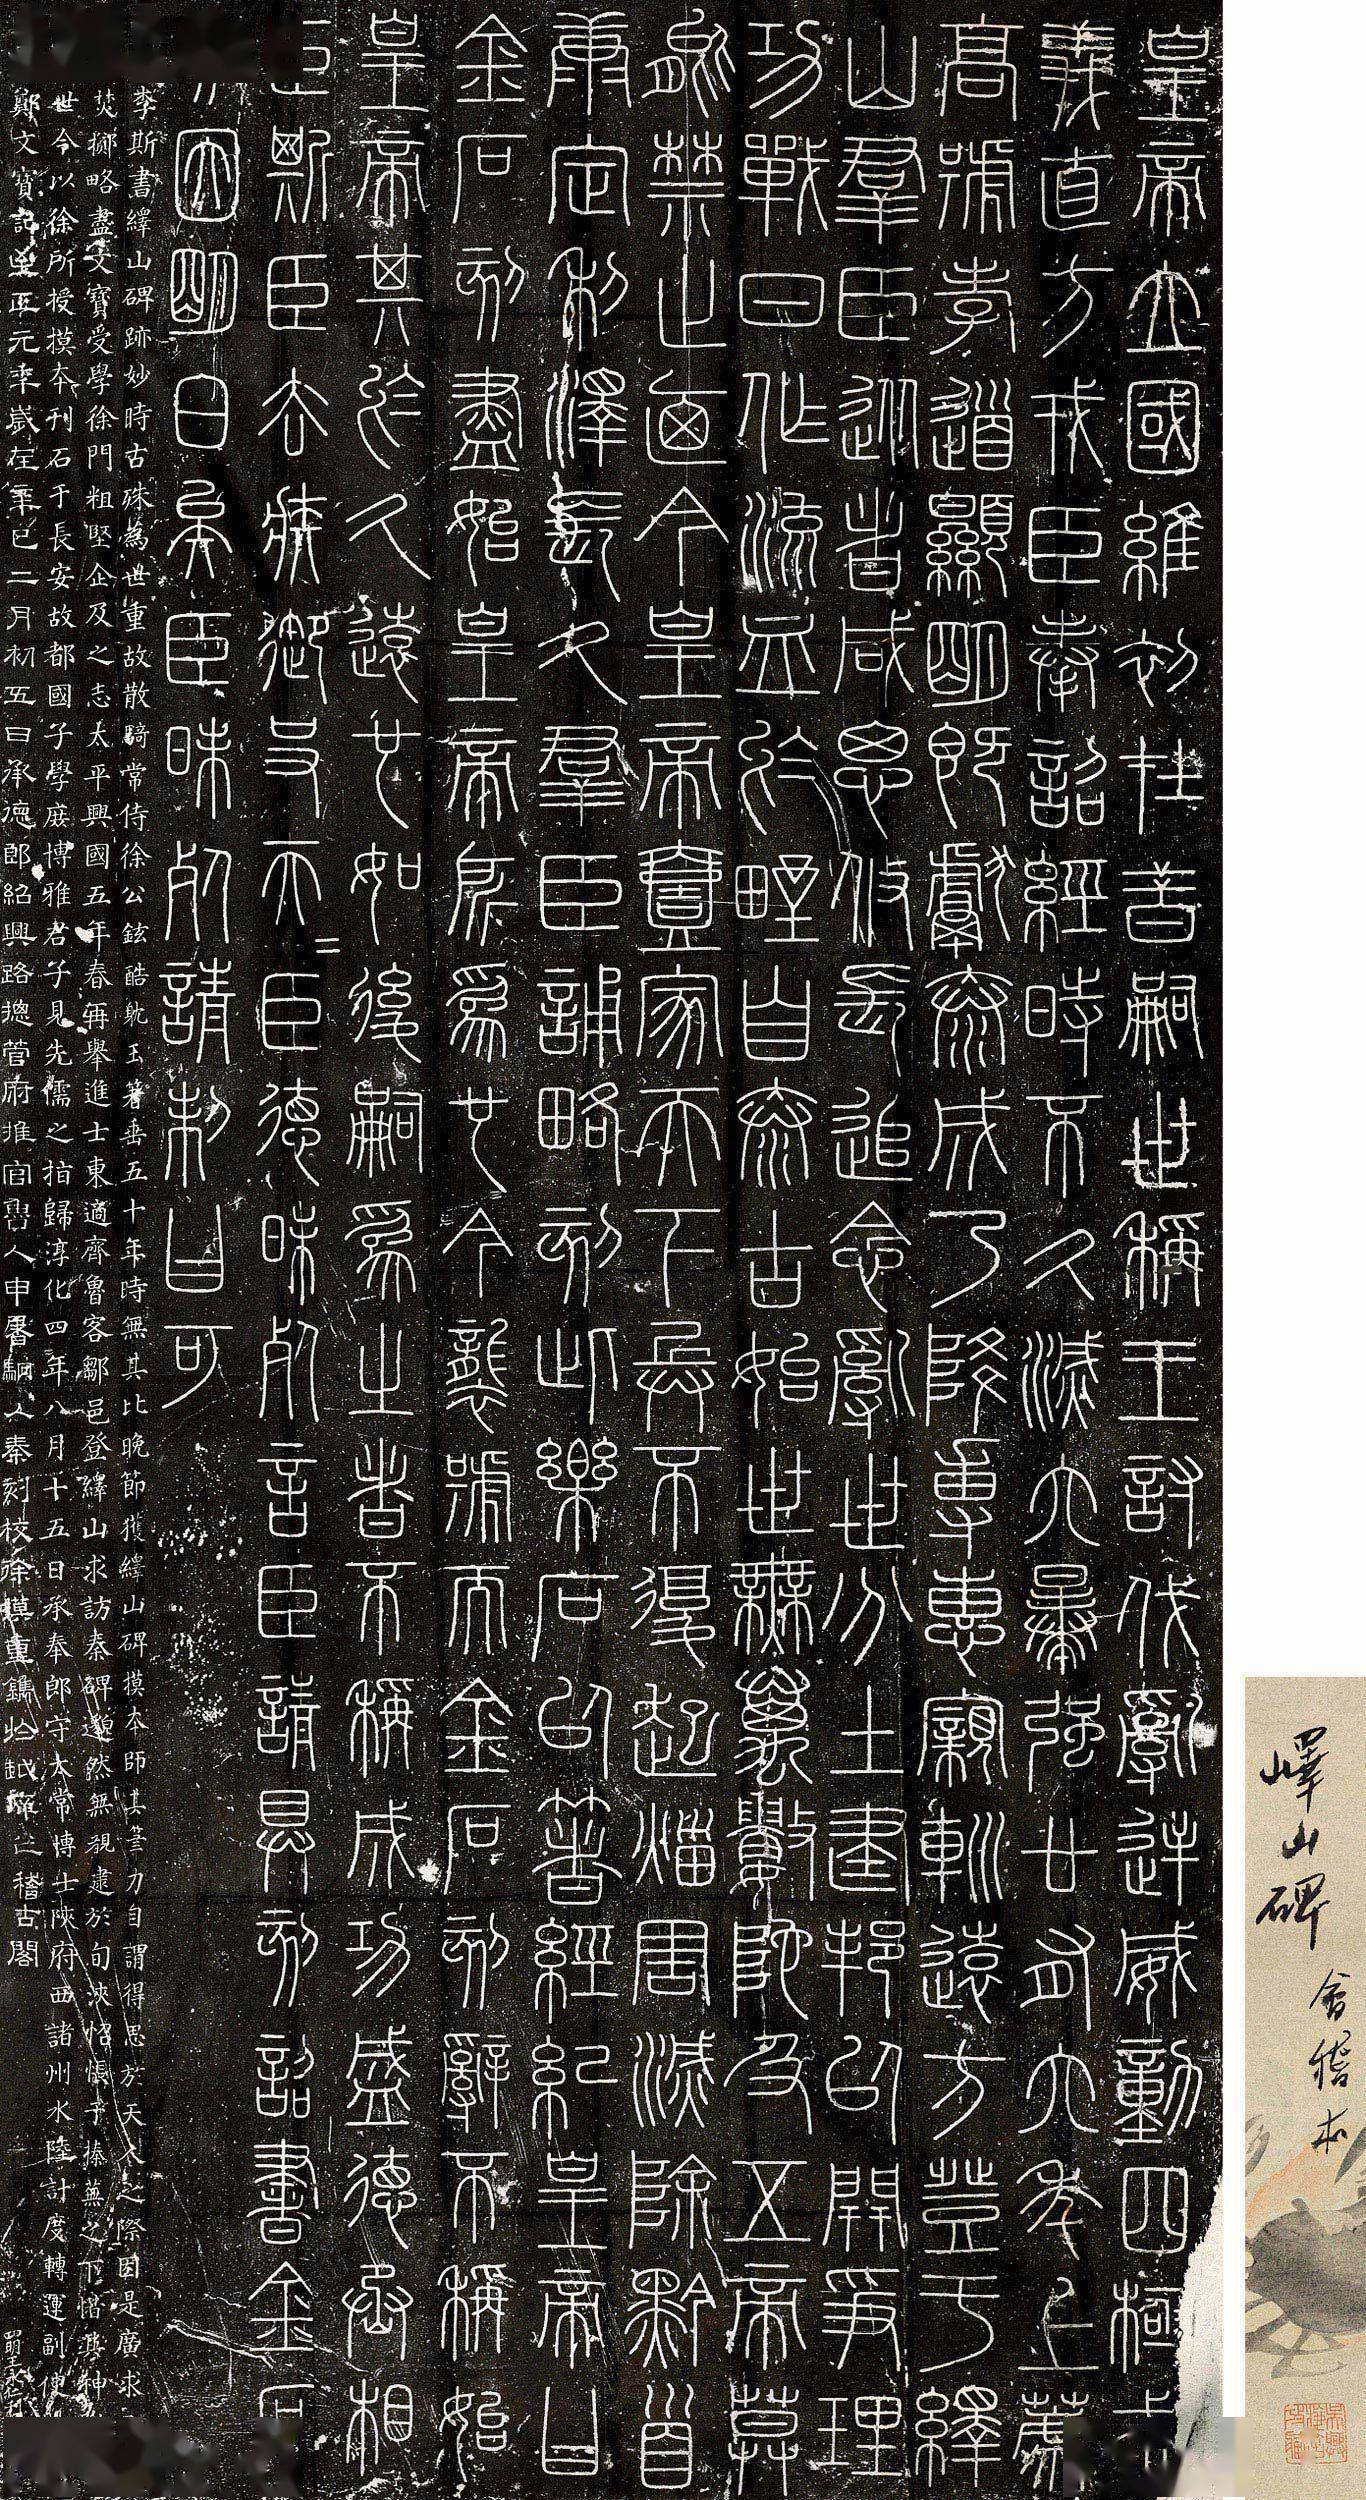 皇帝立國維初在昔嗣世稱王討伐亂逆威動四極武
義直方戎臣奉詔經時不久滅六暴強廿有六年上薦
高號孝道顯明既獻泰成乃降專惠親巡遠方登于繹
山群臣從者咸思攸長追念亂世分土建邦以開爭理
功戰日作流血於野自泰古始世無萬數陀及五帝莫
能禁止迺今皇帝壹家天下兵不復起災害滅除黔首
康定利澤長久群臣誦略刻此樂石以著經紀皇帝曰
金石刻盡始皇帝所為也今襲號而金石刻辭不稱始
皇帝其於久遠也如後嗣為之者不稱成功盛德丞相
臣斯臣去疾御史夫=臣德昧死言臣請具刻詔書金石
刻因明白矣臣昧死請制曰可
李斯書繹山碑跡妙時古殊為世重故散騎常侍徐公鉉酷躭玉箸垂五十年時無其比晚節獲繹山碑摸本師其筆力自謂得思於天人之際因是廣求
焚擲略盡文寶受學徐門粗堅企及之志太平興國五年春再舉進士東適齊魯客鄒邑登繹山求訪秦碑邈然無覩逮於旬浹怊悵于榛蕪之下惜其神
世今以徐所授摸本刊石于長安故都國子學庶博雅君子見先儒之指歸淳化四年八月十五日承奉郎守太常博士陝府西諸州水陸計度轉運副使
鄭文寶記至正元年歲在辛巳二月初五日承德郎紹興路總管府推官人申屠駉以秦刻校徐摸重鐫於越庠之稽古閣
嶧山碑
會稽本